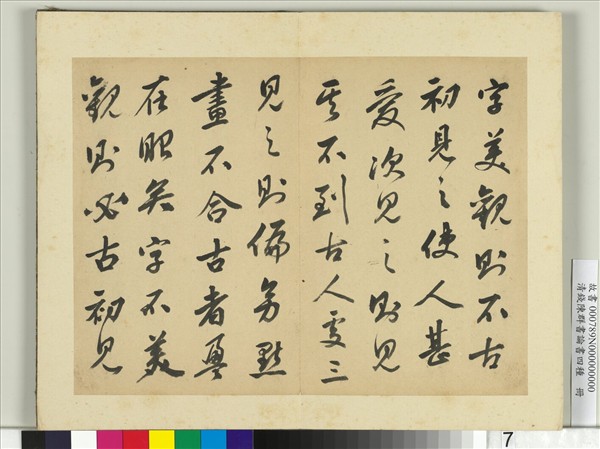 字美觀則不古
初見之使人甚
愛次見之則見
其不到古人處三
見之則偏旁點
畫不合古者歷
在眼矣字不美
觀則必古初見
故書 000789N000000000
清錢陳群書論書四種 冊
7